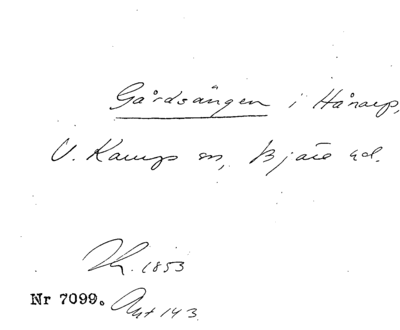 Gårdsängen i Hånarp,
V. Karups sn, Bjäre hd.
Kr. 1853
Nr 7099. Akt 143